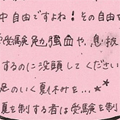 中自由ですよね!その自由
受験勉強
や、息抜
するのに没頭してください
息のいく夏休みを…★
夏を制する者は受験を制